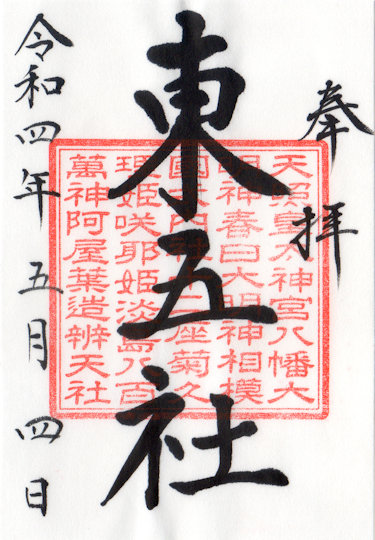 奉拝
東五社
天照皇太神宮八幡大
明神春日大明神相模
國六神十二座菊久
姫咲耶姫淡島八百
萬神阿屋葉造辨天社
令和四年五月四日